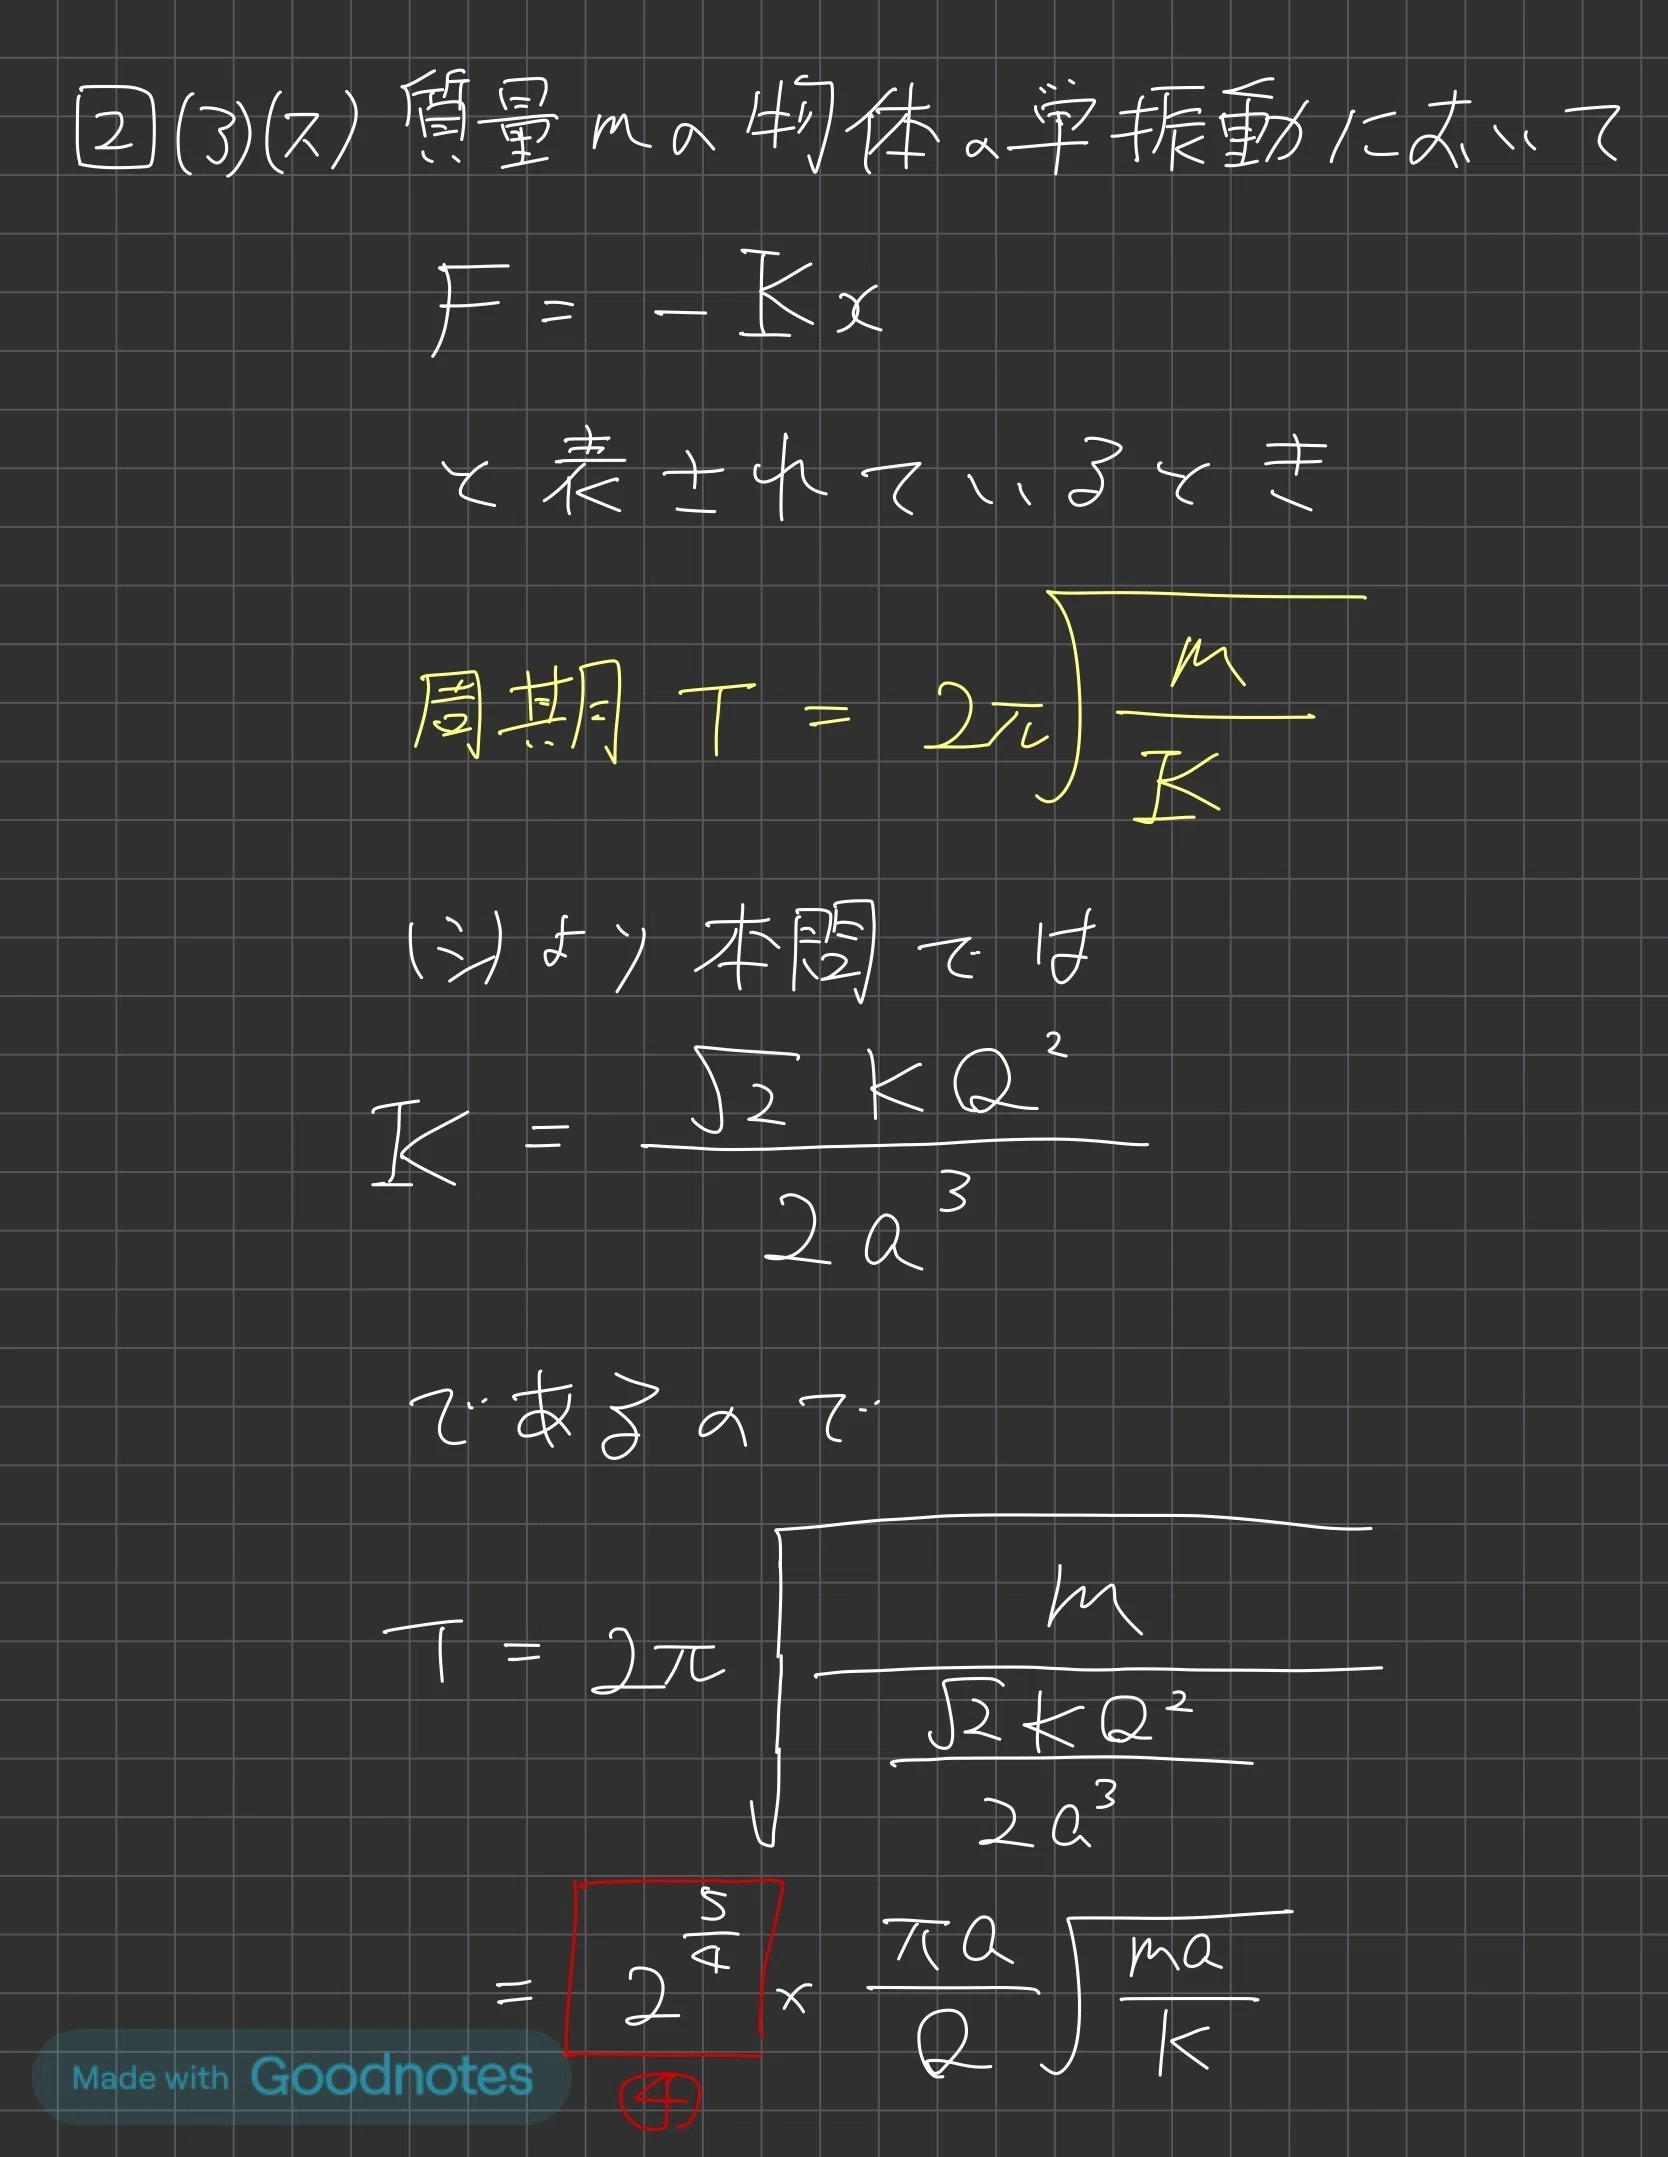 2 (3)(ス) 質量mの物体の単振動において
F = -Kx
と表されているとき
周期 T = 2π√(m/K)
(シ)より本問では
K = √2 kQ² / 2a³
であるので
T = 2π√(m / (√2 kQ² / 2a³))
= 2^(5/4) × πa/Q √(ma/k)
④
Made with Goodnotes